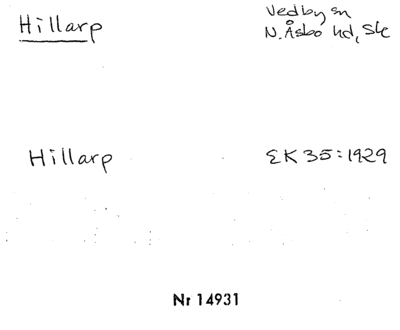 Hillarp
Vedby sn
N. Åsbo hd, Sk
Hillarp
EK 35:1929
Nr 14931